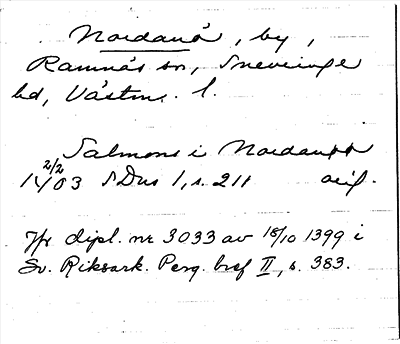 Nordanå, by,
Ramnäs sn, Snevringe
hd, Västm. l.
Salmons i Nordanaa
2/2 1403 SDns 1, s. 211 orig.
Jfr dipl. nr 3033 av 18/10 1399 i
Sv. Riksark. Perg. bref II, s. 383.